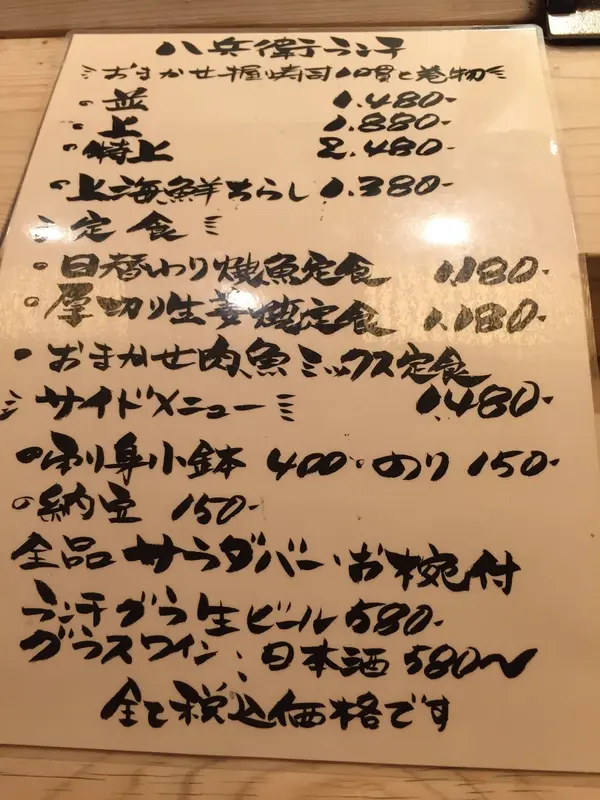 八兵衛ランチ
おまかせ握り寿司10貫と巻物
・並 1.480-
・上 1.880-
・特上 2.480-
・上海鮮ちらし 1.380-
定食
・日替わり焼魚定食 1,180-
・厚切り生姜焼定食 1,180-
・おまかせ肉、魚ミックス定食
サイドメニュー 1,480-
・刺身小鉢 400 ・のり 150-
・納豆 150-
全品サラダバー・お椀付
ランチグラス生ビール 580-
グラスワイン、日本酒 580〜
全て税込価格です